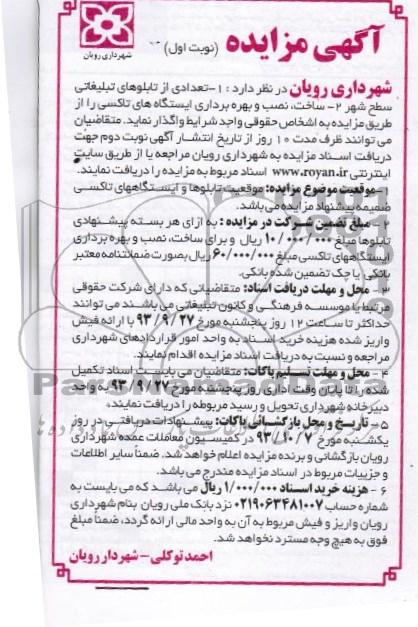 آگهی مزایده (نوبت اول)
شهرداری رویان
شهرداری رویان در نظر دارد : ۱-تعدادی از تابلوهای تبلیغاتی
سطح شهر ۲- ساخت، نصب و بهره برداری ایستگاه های تاکسی را از
طریق مزایده به اشخاص حقوقی واجد شرایط واگذار نماید. متقاضیان
می توانند ظرف مدت ۱۰ روز از تاریخ انتشار آگهی نوبت دوم جهت
دریافت اسناد مزایده به شهرداری رویان مراجعه یا از طریق سایت
اینترنتی www.royan.ir اسناد مربوط به مزایده را دریافت نمایند.
۱-موقعیت موضوع مزایده: موقعیت تابلوها و ایستگاههای تاکسی
ضمیمه پیشنهاد مزایده می باشد.
۲- مبلغ تضمین شرکت در مزایده : به ازای هر بسته پیشنهادی
تابلوها مبلغ ۱۰/۰۰۰/۰۰۰ ریال و برای ساخت، نصب و بهره برداری
ایستگاههای تاکسی مبلغ ۶۰/۰۰۰/۰۰۰ ریال بصورت ضمانتنامه معتبر
بانکی یا چک تضمین شده بانکی.
۳- محل و مهلت دریافت اسناد: متقاضیانی که دارای شرکت حقوقی
مرتبط یا موسسه فرهنگی و کانون تبلیغاتی می باشند می توانند
حداکثر تا ساعت ۱۲ روز پنجشنبه مورخ ۹۳/۹/۲۷ با ارائه فیش
واریز شده هزینه خرید اسناد به واحد امور قراردادهای شهرداری
مراجعه و نسبت به دریافت اسناد مزایده اقدام نمایند.
۴- محل و مهلت تسلیم پاکات: متقاضیان می بایست اسناد تکمیل
شده را تا پایان وقت اداری روز پنجشنبه مورخ ۹۳/۹/۲۷ به واحد
دبیرخانه شهرداری تحویل و رسید مربوطه را دریافت نمایند.
۵- تاریخ و محل بازگشائی پاکات: پیشنهادات دریافتی در روز
یکشنبه مورخ ۹۳/۱۰/۷ در کمیسیون معاملات عمده شهرداری
رویان بازگشائی و برنده مزایده اعلام خواهد شد. ضمناً سایر اطلاعات
و جزییات مربوط در اسناد مزایده مندرج می باشد.
۶ - هزینه خرید اسناد ۱/۰۰۰/۰۰۰ ریال می باشد که می بایست به
شماره حساب ۰۲۱۹۰۶۳۴۸۱۰۰۷ نزد بانک ملی رویان بنام شهرداری
رویان واریز و فیش مربوط به آن به واحد مالی ارائه گردد، ضمناً مبلغ
فوق به هیچ وجه مسترد نخواهد شد.
احمد توکلی - شهردار رویان